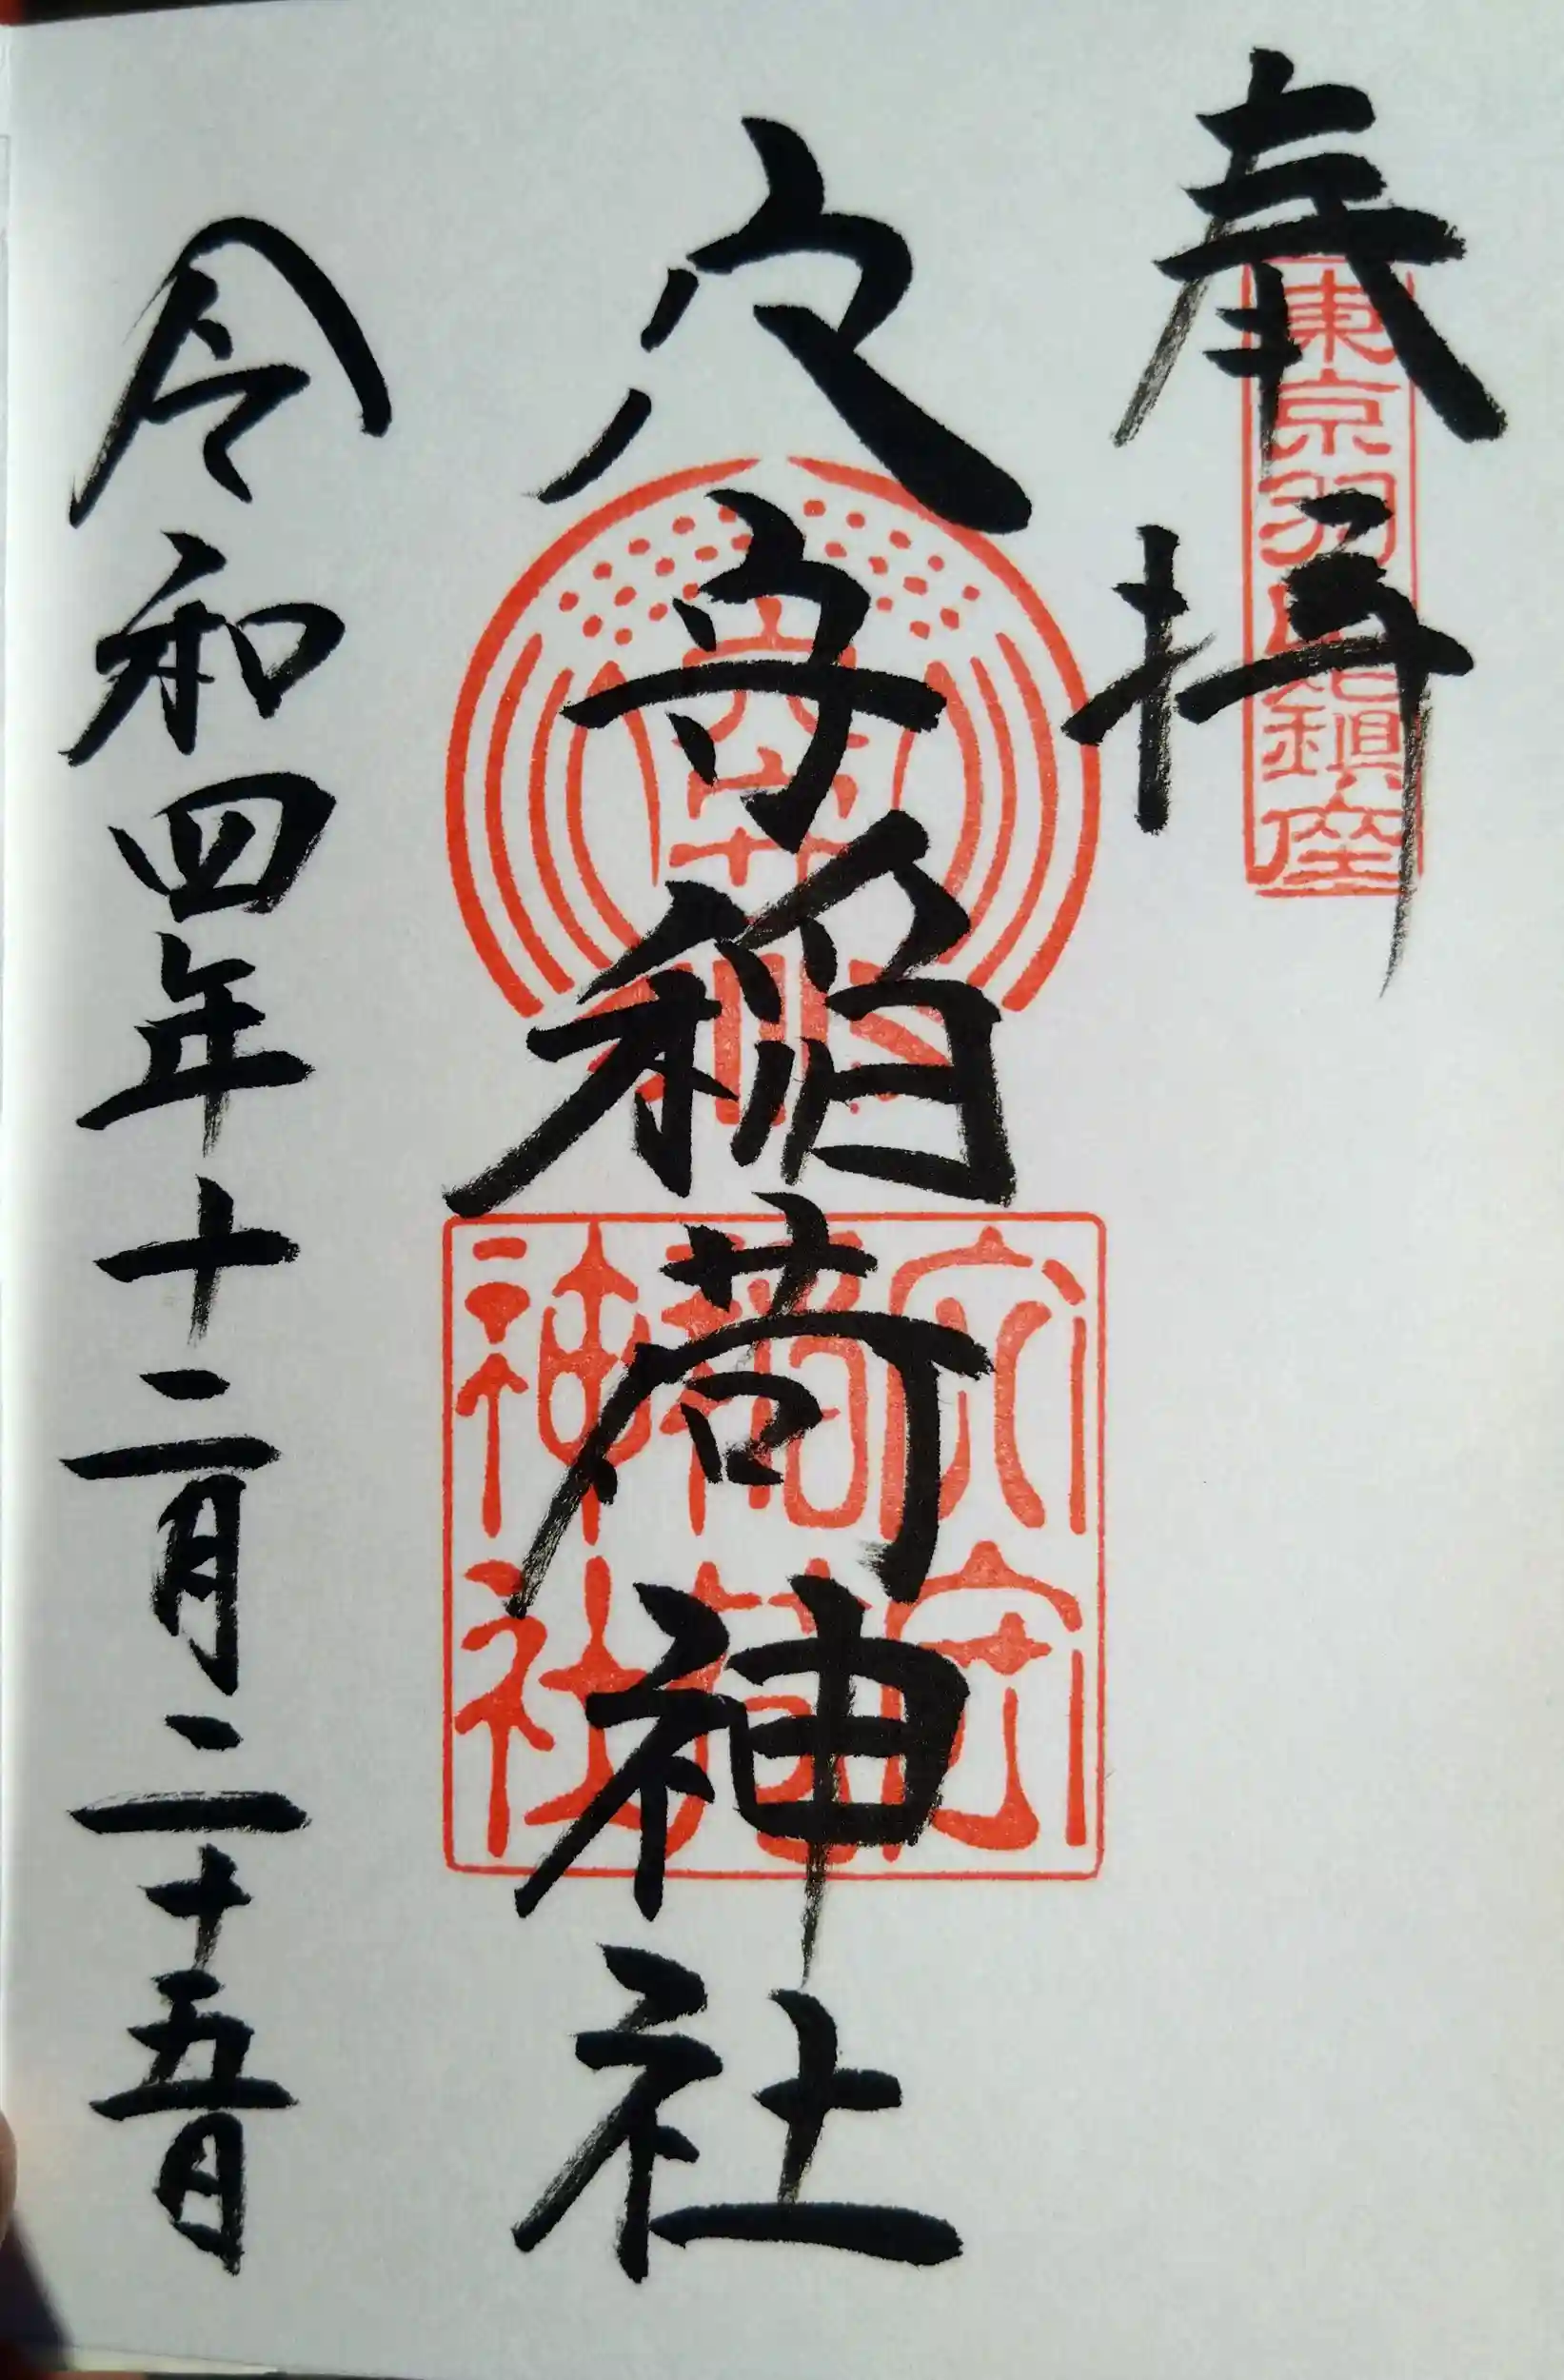 奉拝
東京羽田鎮座
穴守稲荷神社
穴守
稲荷
神社
令和四年十二月二十五日